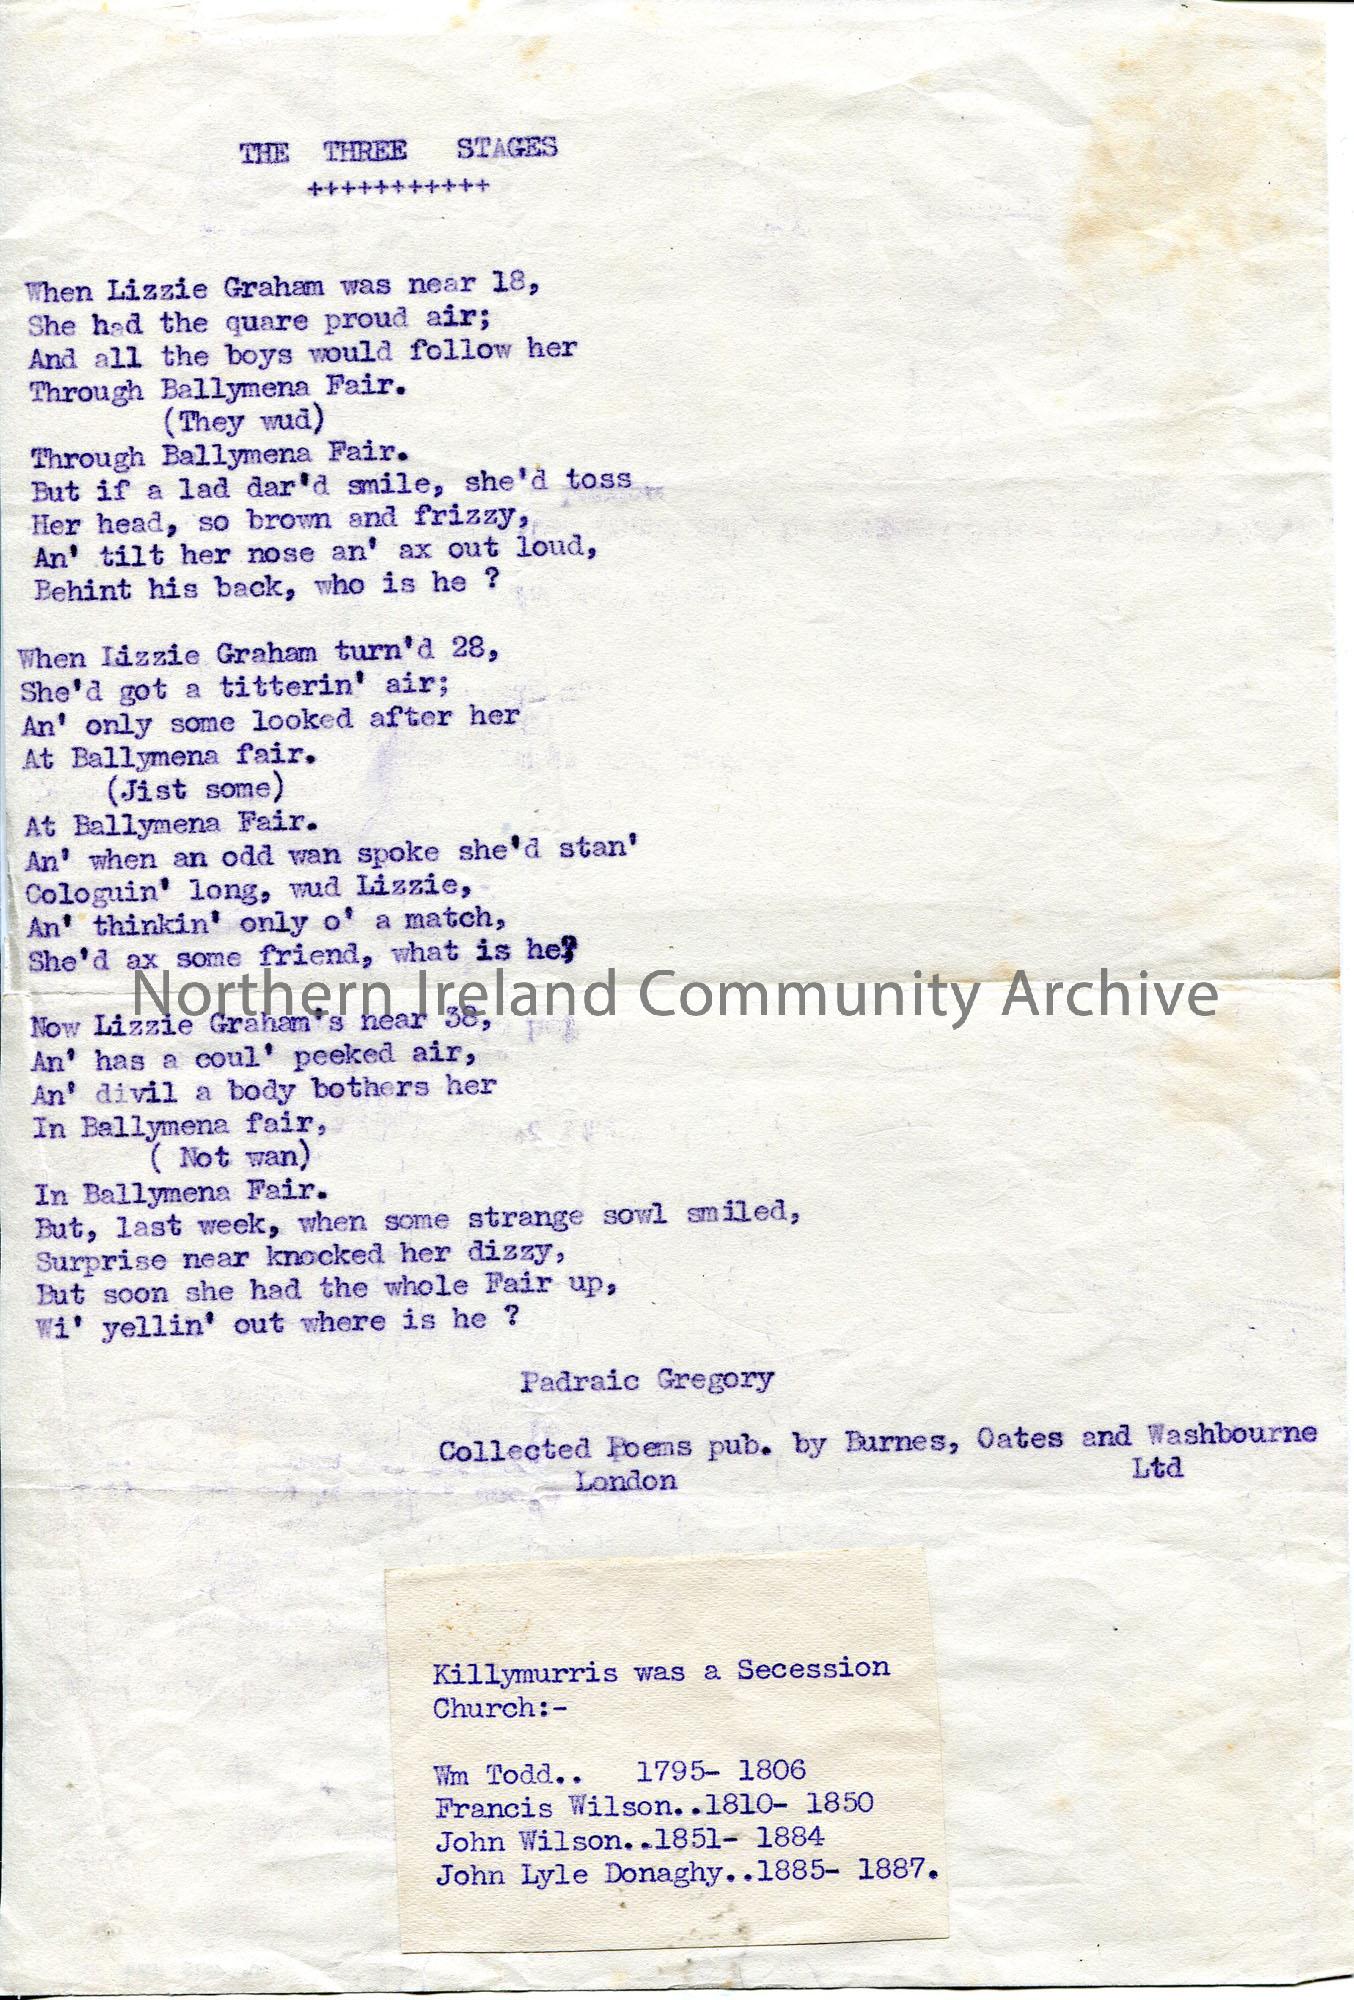 THE THREE STAGES
+++++++++++
When Lizzie Graham was near 18,
She had the quare proud air;
And all the boys would follow her
Through Ballymena Fair.
(They wud)
Through Ballymena Fair.
But if a lad dar'd smile, she'd toss
Her head, so brown and frizzy,
An' tilt her nose an' ax out loud,
Behint his back, who is he ?
When Lizzie Graham turn'd 28,
She'd got a titterin' air;
An' only some looked after her
At Ballymena fair.
(Jist some)
At Ballymena Fair.
An' when an odd wan spoke she'd stan'
Cologuin' long, wud Lizzie,
An' thinkin' only o' a match,
She'd ax some friend, what is he?
Northern Ireland Community Archive
Now Lizzie Graham's near 38,
An' has a coul' peeked air,
An' divil a body bothers her
In Ballymena fair,
( Not wan)
In Ballymena Fair.
But, last week, when some strange sowl smiled,
Surprise near knocked her dizzy,
But soon she had the whole Fair up,
Wi' yellin' out where is he ?
Padraic Gregory
Collected Poems pub. by Burnes, Oates and Washbourne
London Ltd
Killymurris was a Secession
Church:-
Wm Todd.. 1795- 1806
Francis Wilson..1810- 1850
John Wilson..1851- 1884
John Lyle Donaghy..1885- 1887.